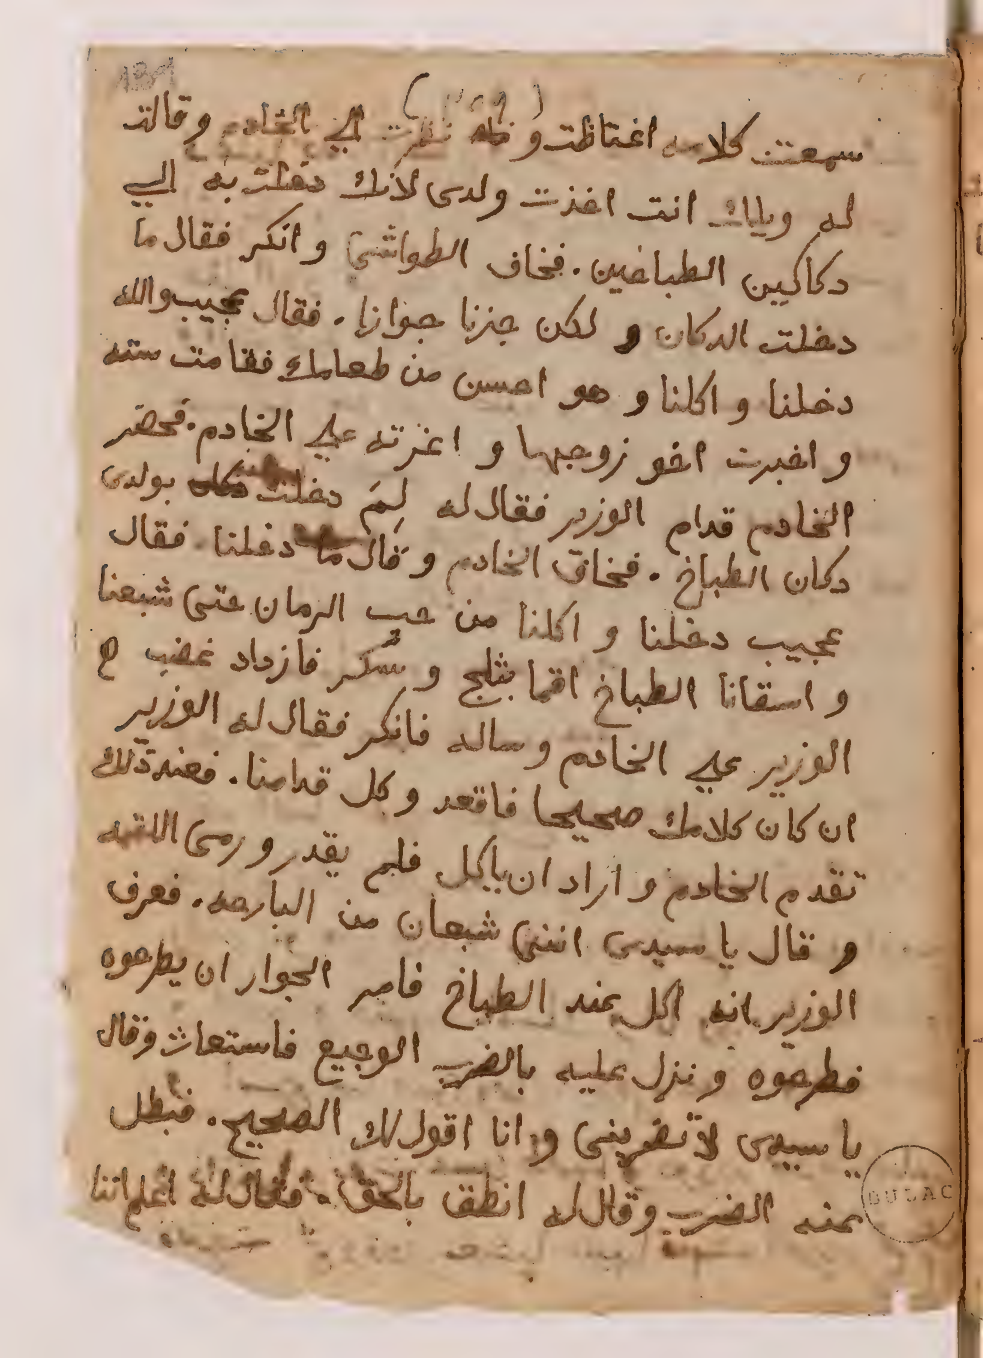 (٣٥٩)
سمعت كلامه اغتاظت و نظرت الي الخادم وقالت
له ويلك انت اخذت ولدى لانك دخلت به الي
دكاكين الطباخين. فخاف الطواشي وانكر فقال ما
دخلت الدكان و لكن جزنا جوازا. فقال عجيب والله
دخلنا و اكلنا و هو احسن من طعامك فقامت سته
و اخبرت اخو زوجها و اغرته علي الخادم. فحضر
الخادم قدام الوزير فقال له لِمَ دخلت بولدى
دكان الطباخ. فخاف الخادم و قال ما دخلنا. فقال
عجيب دخلنا و اكلنا من حب الرمان حتى شبعنا
و اسقانا الطباخ اقما بثلج و سُكر فازداد غضب ح
الوزير علي الخادم وساله فانكر فقال له الوزير
ان كان كلامك صحيحا فاقعد وكل قدامنا. فعند ذلك
تقدم الخادم و اراد ان ياكل فلم يقدر و رمى اللقمه
و قال يا سيدى انني شبعان من البارحه. فعرف
الوزير انه اكل عند الطباخ فامر الجوار ان يطرحوه
فطرحوه و نزل عليه بالضرب الوجيع فاستغاث وقال
يا سيدى لا تضربنى و انا اقول لك الصحيح. فبطل
عنه الضرب وقال له انطق بالحق. فقال له اعلم اننا
BULAC